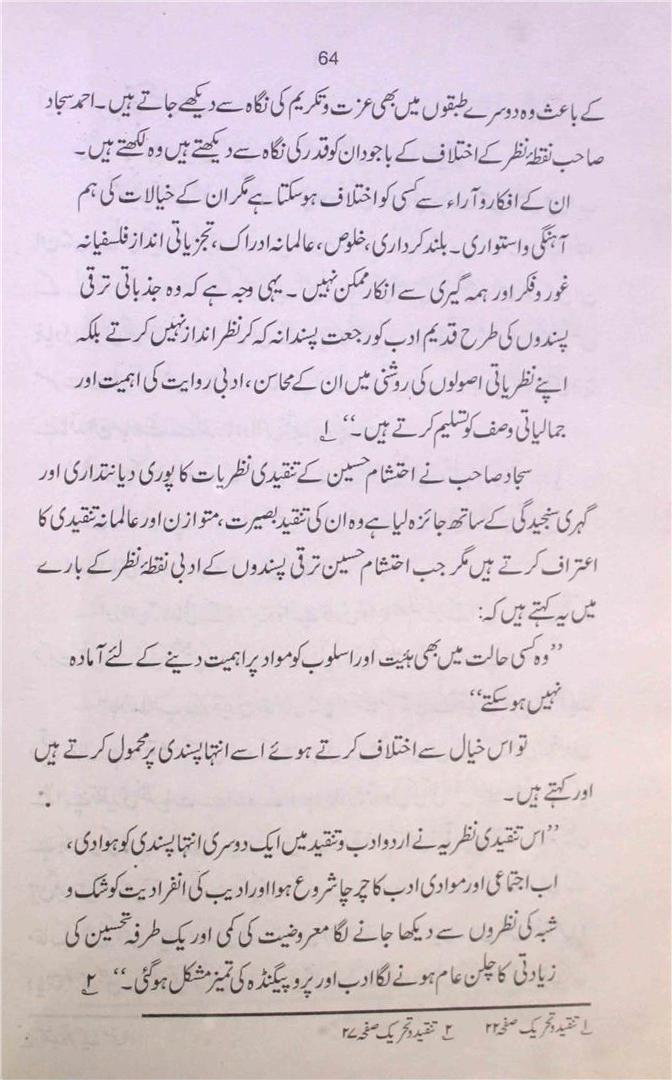 64
کے باعث وہ دوسرے طبقوں میں بھی عزت و تکریم کی نگاہ سے دیکھے جاتے ہیں۔ احمد سجاد
صاحب نقطۂ نظر کے اختلاف کے باجود ان کو قدر کی نگاہ سے دیکھتے ہیں وہ لکھتے ہیں۔
ان کے افکار و آراء سے کسی کو اختلاف ہوسکتا ہے مگر ان کے خیالات کی ہم
آہنگی و استواری۔ بلند کرداری، خلوص، عالمانہ ادراک، تجزیاتی انداز فلسفیانہ
غور و فکر اور ہمہ گیری سے انکار ممکن نہیں۔ یہی وجہ ہے کہ وہ جذباتی ترقی
پسندوں کی طرح قدیم ادب کو رجعت پسندانہ کہ کر نظر انداز نہیں کرتے بلکہ
اپنے نظریاتی اصولوں کی روشنی میں ان کے محاسن، ادبی روایت کی اہمیت اور
جمالیاتی وصف کو تسلیم کرتے ہیں۔‘‘ ۱
سجاد صاحب نے احتشام حسین کے تنقیدی نظریات کا پوری دیانتداری اور
گہری سنجیدگی کے ساتھ جائزہ لیا ہے وہ ان کی تنقید بصیرت، متوازن اور عالمانہ تنقیدی کا
اعتراف کرتے ہیں مگر جب احتشام حسین ترقی پسندوں کے ادبی نقطۂ نظر کے بارے
میں یہ کہتے ہیں کہ:
’’وہ کسی حالت میں بھی ہئیت اور اسلوب کو مواد پر اہمیت دینے کے لئے آمادہ
نہیں ہوسکتے‘‘
تو اس خیال سے اختلاف کرتے ہوئے اسے انتہا پسندی پر محمول کرتے ہیں
اور کہتے ہیں۔
’’اس تنقیدی نظریہ نے اردو ادب و تنقید میں ایک دوسری انتہا پسندی کو ہوا دی،
اب اجتماعی اور موادی ادب کا چرچا شروع ہوا اور ادیب کی انفرادیت کو شک و
شبہ کی نظروں سے دیکھا جانے لگا معروضیت کی کمی اور یک طرفہ تحسین کی
زیادتی کا چلن عام ہونے لگا ادب اور پروپیگنڈہ کی تمیز مشکل ہوگئی۔‘‘ ۲
۱ تنقید و تحریک صفحہ ۲۲ ۲ تنقید و تحریک صفحہ ۲۷